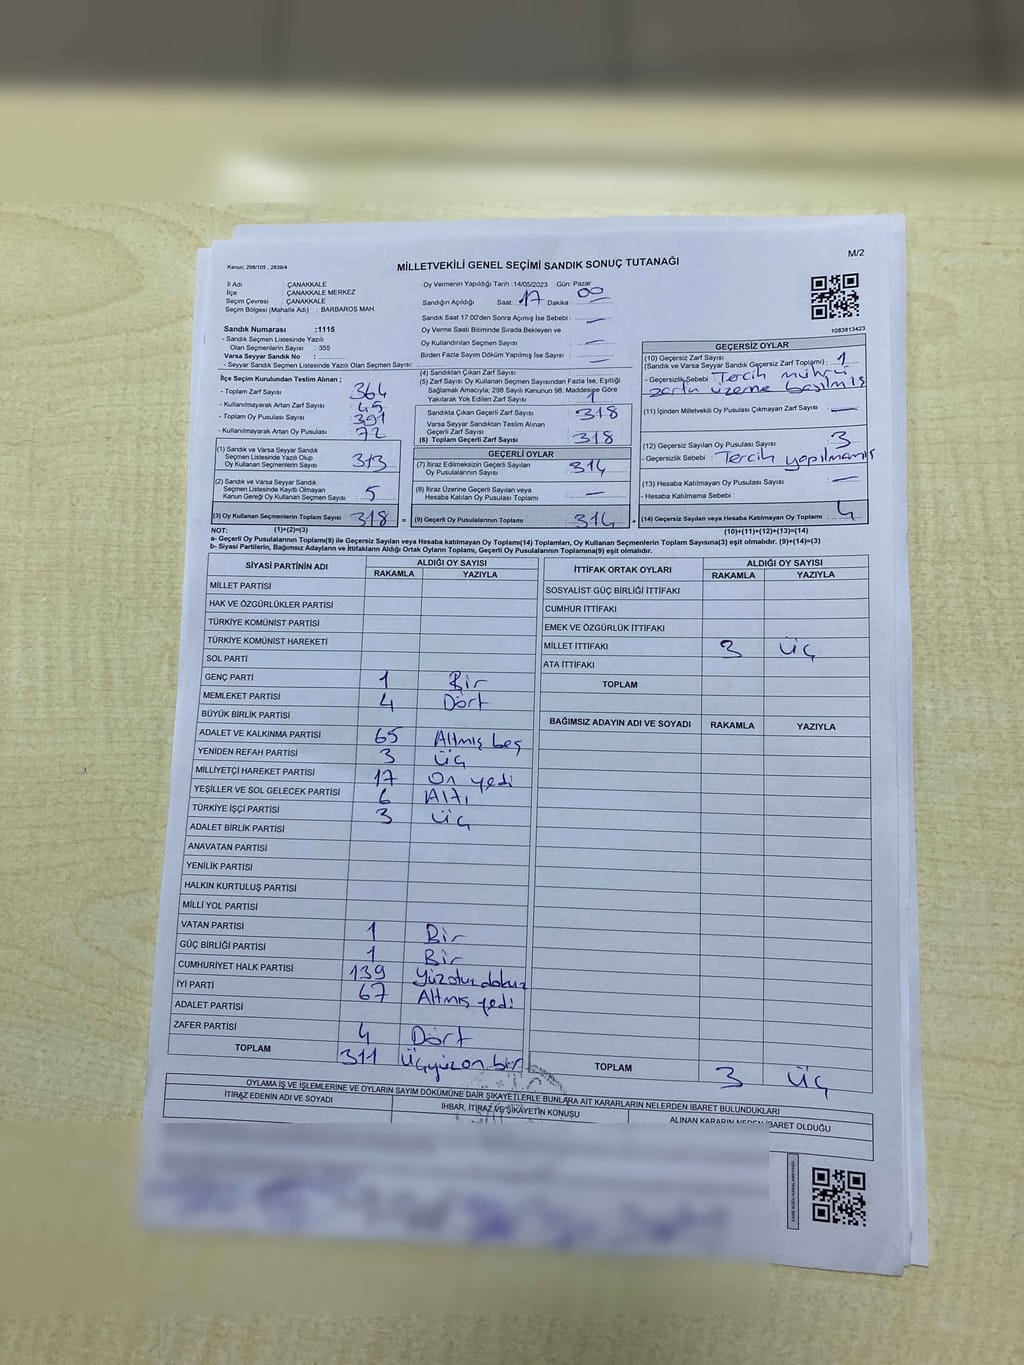 M/2
Kanun; 298/105 , 2839/4
MİLLETVEKİLİ GENEL SEÇİMİ SANDIK SONUÇ TUTANAĞI
İl Adı : ÇANAKKALE
İlçe : ÇANAKKALE MERKEZ
Seçim Çevresi : ÇANAKKALE
Seçim Bölgesi (Mahalle Adı) : BARBAROS MAH.
Sandık Numarası :1115
- Sandık Seçmen Listesinde Yazılı
Olan Seçmenlerin Sayısı : 355
Varsa Seyyar Sandık No :
- Seyyar Sandık Seçmen Listesinde Yazılı Olan Seçmen Sayısı:
Oy Vermenin Yapıldığı Tarih :14/05/2023 Gün: Pazar
Sandığın Açıldığı Saat: 17 Dakika : 00
Sandık Saat 17:00'den Sonra Açılmış İse Sebebi : —
Oy Verme Saati Bitiminde Sırada Bekleyen ve
Oy Kullandırılan Seçmen Sayısı : —
Birden Fazla Sayım Döküm Yapılmış İse Sayısı : —
1083813423
İlçe Seçim Kurulundan Teslim Alınan ;
- Toplam Zarf Sayısı : 364
- Kullanılmayarak Artan Zarf Sayısı : 45
- Toplam Oy Pusulası Sayısı : 391
- Kullanılmayarak Artan Oy Pusulası : 72
(1) Sandık ve Varsa Seyyar Sandık
Seçmen Listesinde Yazılı Olup
Oy Kullanan Seçmenlerin Sayısı : 313
(2) Sandık ve Varsa Seyyar Sandık
Seçmen Listesinde Kayıtlı Olmayan
Kanun Gereği Oy Kullanan Seçmen Sayısı : 5
(3) Oy Kullanan Seçmenlerin Toplam Sayısı : 318
(1)+(2)=(3)
(4) Sandıktan Çıkan Zarf Sayısı :
(5) Zarf Sayısı Oy Kullanan Seçmen Sayısından Fazla İse, Eşitliği
Sağlamak Amacıyla; 298 Sayılı Kanunun 98. Maddesine Göre
Yakılarak Yok Edilen Zarf Sayısı : 1
Sandıkta Çıkan Geçerli Zarf Sayısı : 318
Varsa Seyyar Sandıktan Teslim Alınan
Geçerli Zarf Sayısı :
(6) Toplam Geçerli Zarf Sayısı : 318
GEÇERLİ OYLAR
(7) İtiraz Edilmeksizin Geçerli Sayılan
Oy Pusulalarının Sayısı : 314
(8) İtiraz Üzerine Geçerli Sayılan veya
Hesaba Katılan Oy Pusulası Toplamı : —
= (9) Geçerli Oy Pusulalarının Toplamı : 314 +
GEÇERSİZ OYLAR
(10) Geçersiz Zarf Sayısı
(Sandık ve Varsa Seyyar Sandık Geçersiz Zarf Toplamı) : 1
- Geçersizlik Sebebi : Tercih mührü
zarfın üzerine basılmış
(11) İçinden Milletvekili Oy Pusulası Çıkmayan Zarf Sayısı : —
(12) Geçersiz Sayılan Oy Pusulası Sayısı : 3
- Geçersizlik Sebebi : Tercih yapılmamış
(13) Hesaba Katılmayan Oy Pusulası Sayısı : —
- Hesaba Katılmama Sebebi :
(14) Geçersiz Sayılan veya Hesaba Katılmayan Oy Toplamı : 4
(10)+(11)+(12)+(13)=(14)
NOT:
a- Geçerli Oy Pusulasının Toplamı(9) ile Geçersiz Sayılan veya Hesaba katılmayan Oy Toplamı(14) Toplamları, Oy Kullanan Seçmenlerin Toplam Sayısına(3) eşit olmalıdır. (9)+(14)=(3)
b- Siyasi Partilerin, Bağımsız Adayların ve İttifakların Aldığı Ortak Oyların Toplamı, Geçerli Oy Pusulalarının Toplamına(9) eşit olmalıdır.
SİYASİ PARTİNİN ADI ALDIĞI OY SAYISI
RAKAMLA YAZIYLA
MİLLET PARTİSİ
HAK VE ÖZGÜRLÜKLER PARTİSİ
TÜRKİYE KOMÜNİST PARTİSİ
TÜRKİYE KOMÜNİST HAREKETİ
SOL PARTİ
GENÇ PARTİ 1 Bir
MEMLEKET PARTİSİ 4 Dört
BÜYÜK BİRLİK PARTİSİ
ADALET VE KALKINMA PARTİSİ 65 Altmış beş
YENİDEN REFAH PARTİSİ 3 üç
MİLLİYETÇİ HAREKET PARTİSİ 17 On yedi
YEŞİLLER VE SOL GELECEK PARTİSİ 6 Altı
TÜRKİYE İŞÇİ PARTİSİ 3 üç
ADALET BİRLİK PARTİSİ
ANAVATAN PARTİSİ
YENİLİK PARTİSİ
HALKIN KURTULUŞ PARTİSİ
MİLLİ YOL PARTİSİ
VATAN PARTİSİ 1 Bir
GÜÇ BİRLİĞİ PARTİSİ 1 Bir
CUMHURİYET HALK PARTİSİ 139 Yüzotuz dokuz
İYİ PARTİ 67 Altmış yedi
ADALET PARTİSİ
ZAFER PARTİSİ 4 Dört
TOPLAM 311 üçyüzon bir
İTTİFAK ORTAK OYLARI ALDIĞI OY SAYISI
RAKAMLA YAZIYLA
SOSYALİST GÜÇ BİRLİĞİ İTTİFAKI
CUMHUR İTTİFAKI
EMEK VE ÖZGÜRLÜK İTTİFAKI
MİLLET İTTİFAKI 3 üç
ATA İTTİFAKI
TOPLAM
BAĞIMSIZ ADAYIN ADI VE SOYADI RAKAMLA YAZIYLA
TOPLAM 3 üç
OYLAMA İŞ VE İŞLEMLERİNE VE OYLARIN SAYIM DÖKÜMÜNE DAİR ŞİKAYETLERLE BUNLARA AİT KARARLARIN NELERDEN İBARET BULUNDUKLARI
İTİRAZ EDENİN ADI VE SOYADI
İHBAR, İTİRAZ VE ŞİKAYETİN KONUSU
ALINAN KARARIN NEDEN İBARET OLDUĞU